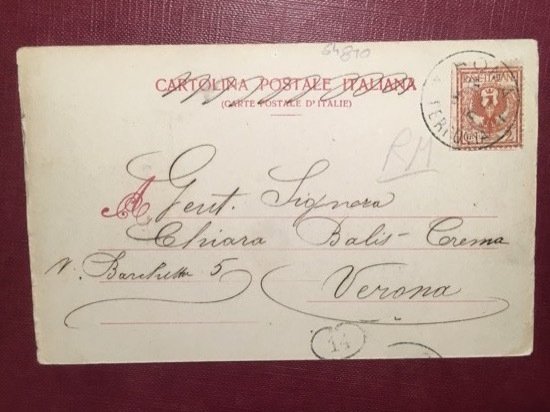 64810
CARTOLINA POSTALE ITALIANA
(CARTE POSTALE D'ITALIE)
POSTE ITALIANE
RM
A Gent. Signora
Chiara Balis-Crema
V. Barchetta 5
Verona
14